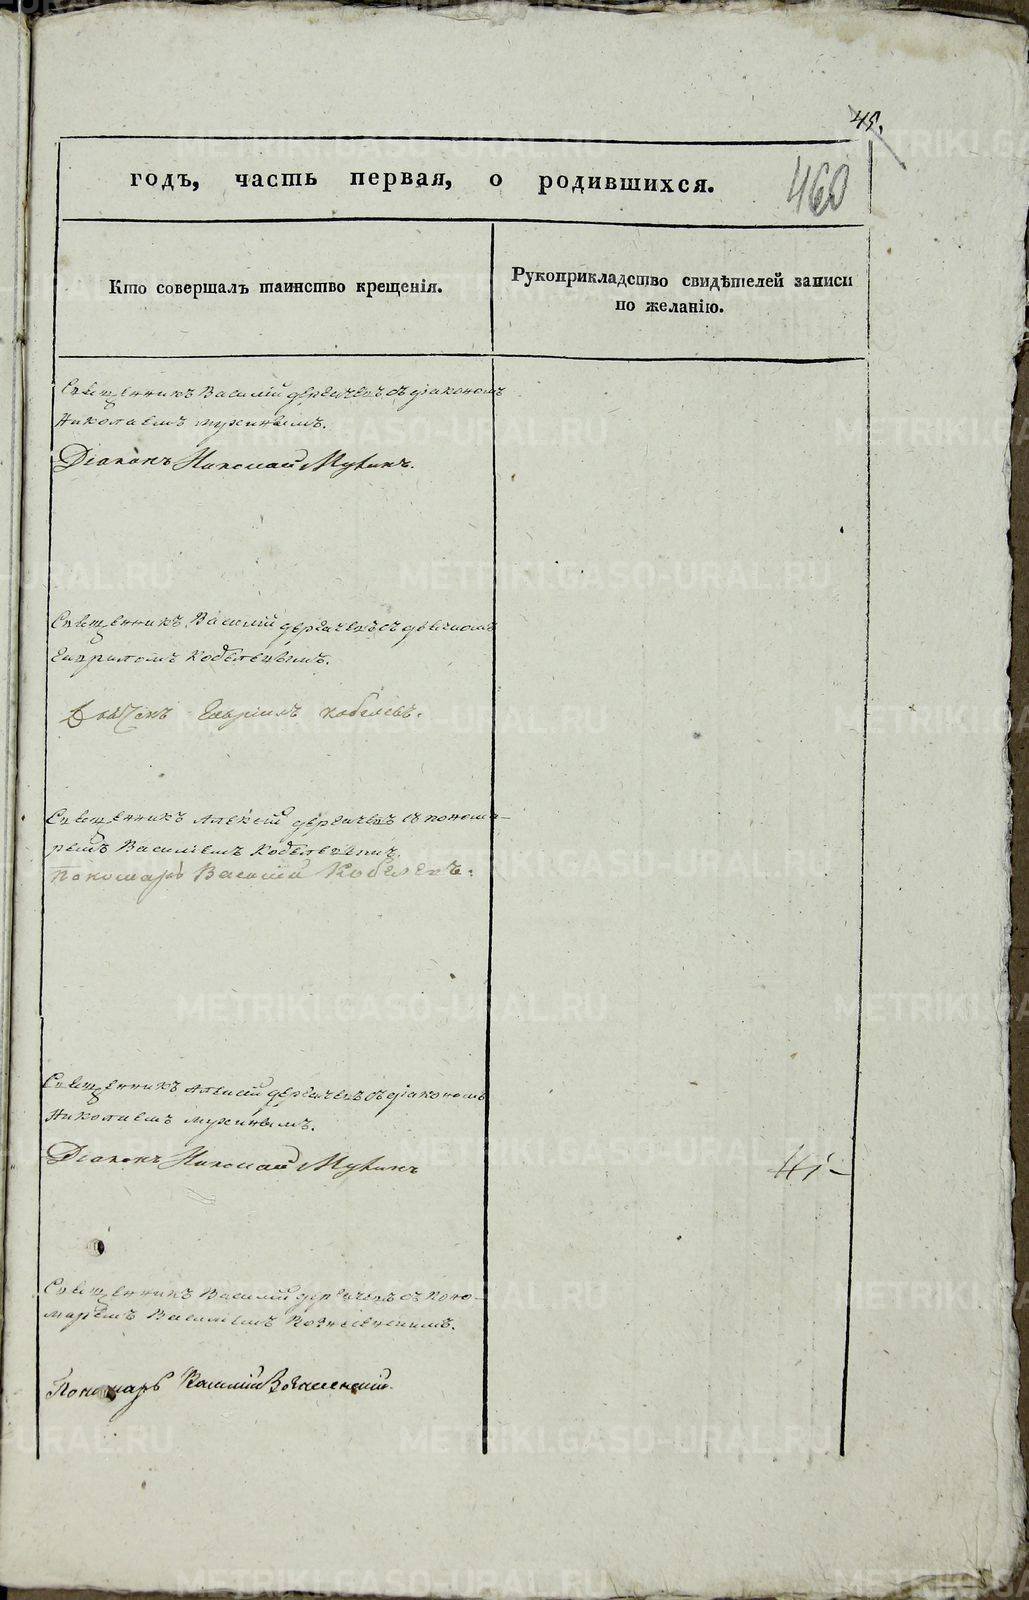 45.
годъ, часть первая, о родившихся.
460
Кто совершалъ таинство крещенія.
Рукоприкладство свидѣтелей записи
по желанію.
Священникъ Василій съ діакономъ
Николаемъ Мухинымъ.
Діаконъ Николай Мухинъ.
Священникъ Василій съ дьячкомъ
Гавриломъ Кобелевымъ.
Дьячекъ Гавріилъ Кобелевъ.
Священникъ Алексій съ понома-
ремъ Василіемъ
Пономарь Василий Кобелевъ.
Священникъ Алексій съ діакономъ
Николаемъ Мухинымъ.
Діаконъ Николай Мухинъ
Священникъ Василій съ поно-
маремъ Василіемъ Вознесенскимъ.
Пономарь Василій Вознесенскій.
METRIKI.GASO-URAL.RU